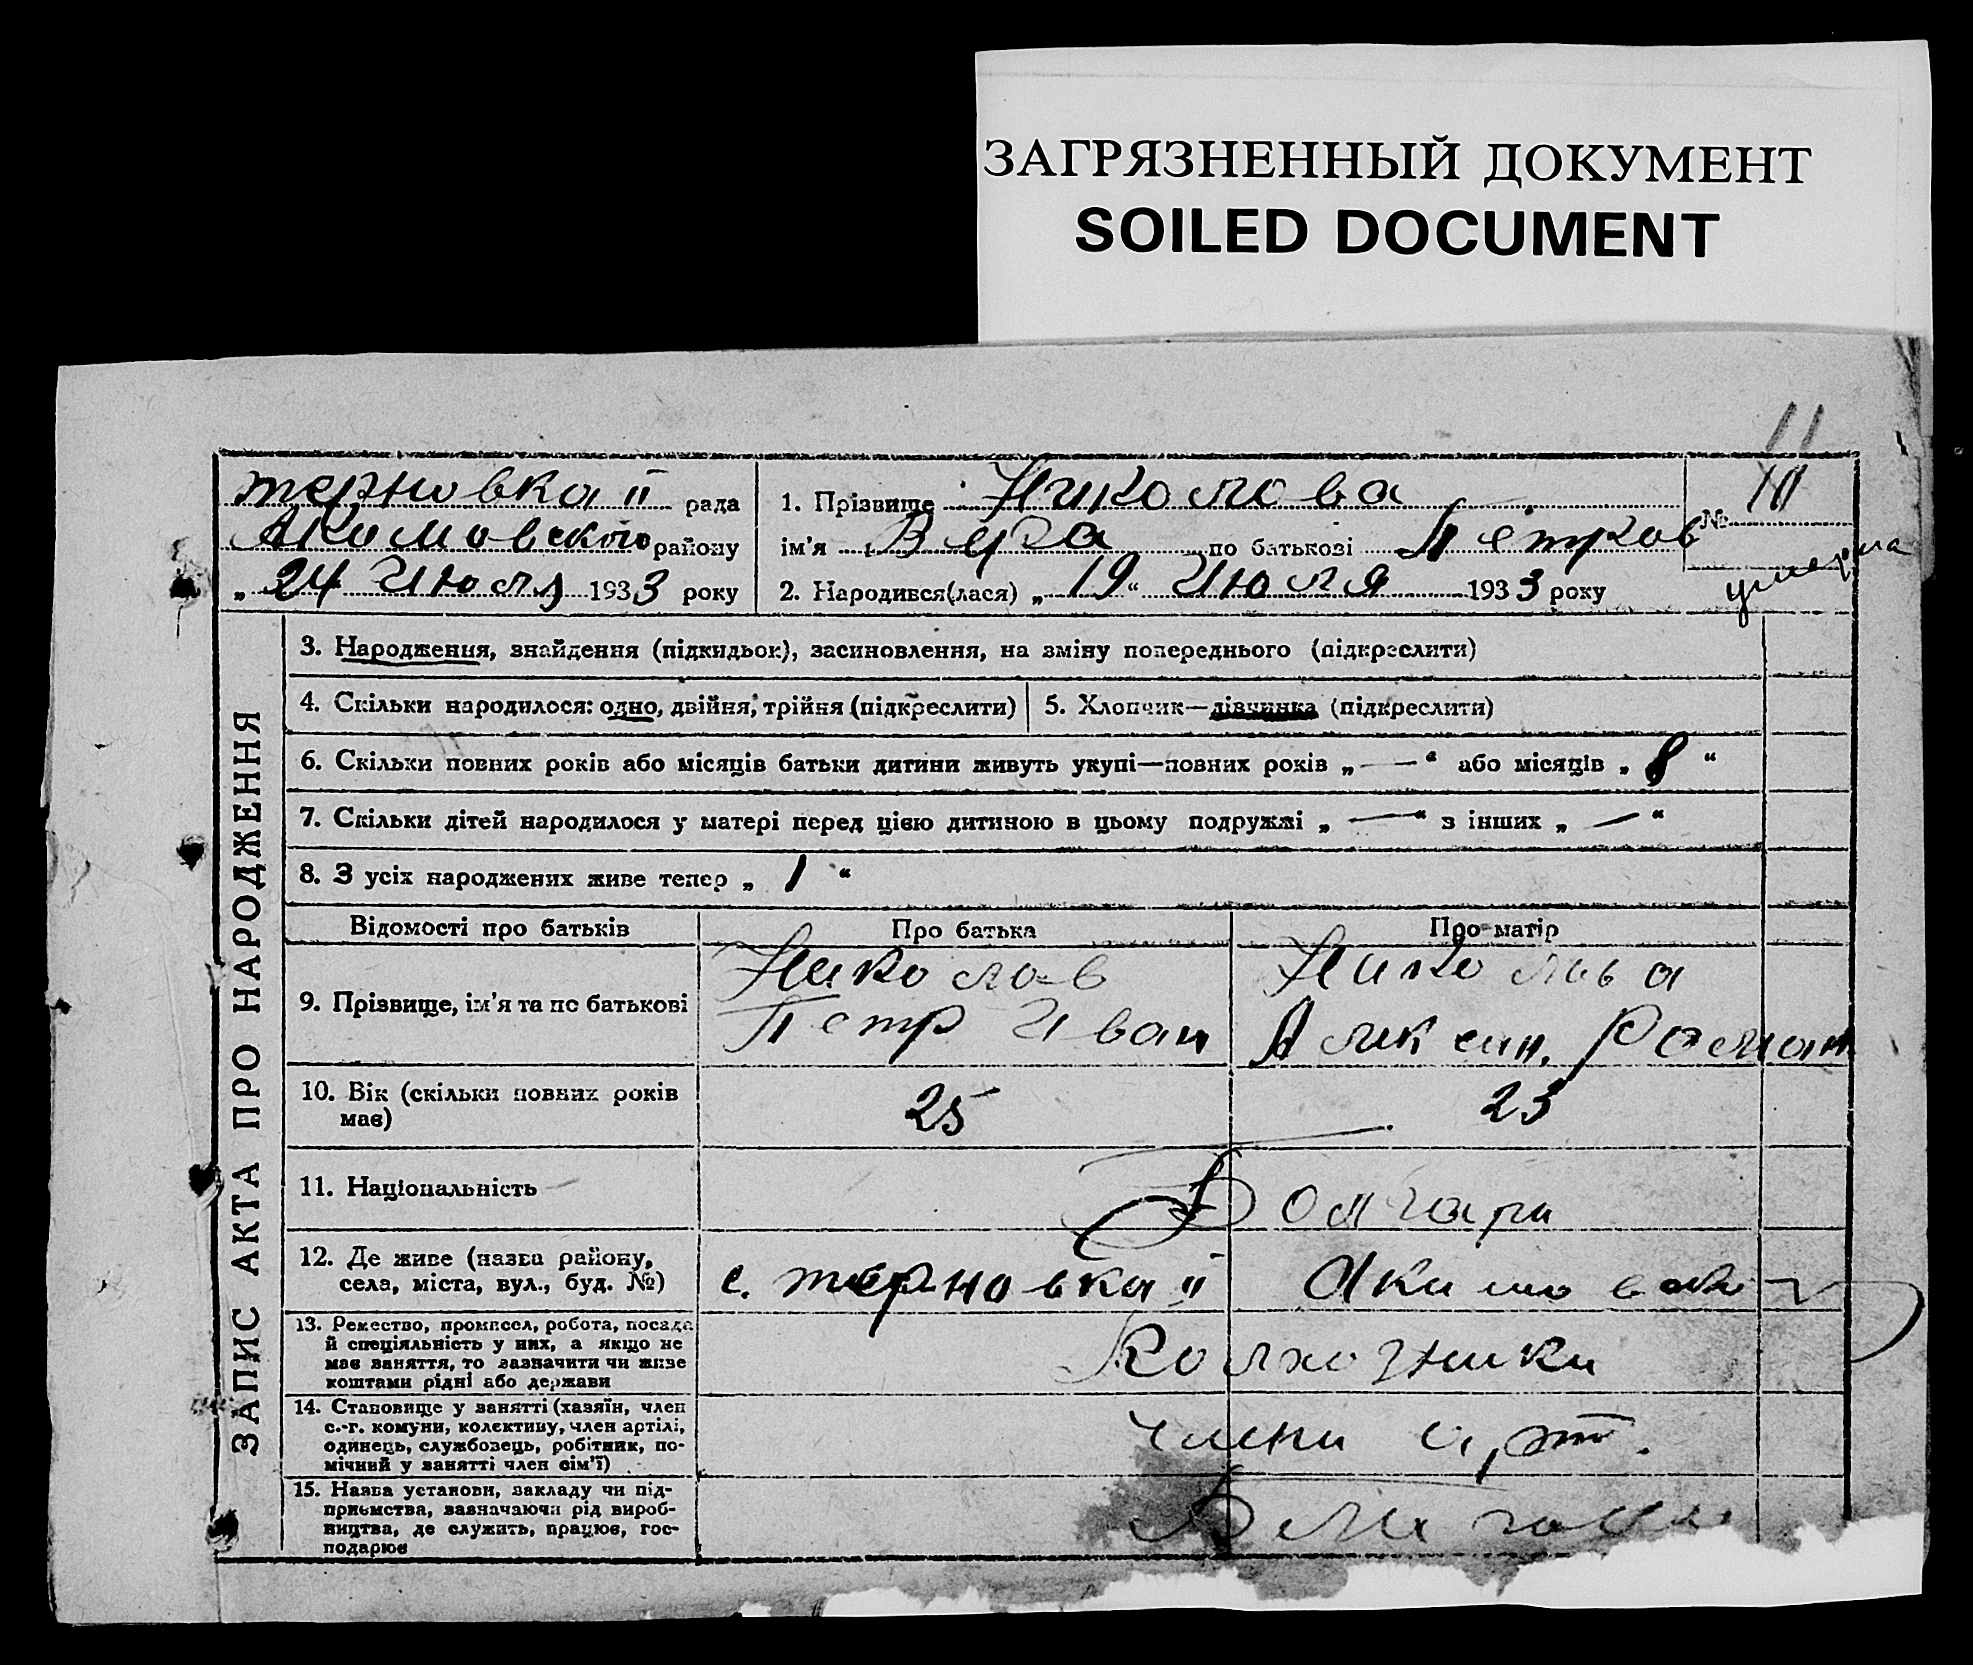 ЗАГРЯЗНЕННЫЙ ДОКУМЕНТ
SOILED DOCUMENT
11
терновка II рада
Акимовского району
„ 24 Июля 1933 року
1. Прізвище Николова
ім'я Вера по батькові Петров
2. Народився(лася) „ 19 “ Июля 1933 року
№ 10
умерла
ЗАПИС АКТА ПРО НАРОДЖЕННЯ
3. Народження, знайдення (підкидьок), засиновлення, на зміну попереднього (підкреслити)
4. Скільки народилося: одно, двійня, трійня (підкреслити)
5. Хлопчик—дівчинка (підкреслити)
6. Скільки повних років або місяців батьки дитини живуть укупі—повних років „ — “ або місяців „ 8 “
7. Скільки дітей народилося у матері перед цією дитиною в цьому подружжі „ — “ з інших „ — “
8. З усіх народжених живе тепер „ 1 “
Відомості про батьків Про батька Про матір
9. Прізвище, ім'я та по батькові
Николов
Петр Иван
Николова
Роман
10. Вік (скільки повних років має)
25
23
11. Національність
Болгари
12. Де живе (назва району,
села, міста, вул., буд. №)
с. терновка II Акимовски
13. Ремество, промисел, робота, посада
й спеціяльність у них, а якщо не
має заняття, то зазначити чи живе
коштами рідні або держави
Колхозники
14. Становище у занятті (хазяїн, член
с.-г. комуни, колективу, член артілі,
одинець, службовець, робітник, по-
мічний у занятті член сім'ї)
члени арт.
15. Назва установи, закладу чи під-
приємства, зазначаючи рід вироб-
ництва, де служить, працює, гос-
подарює